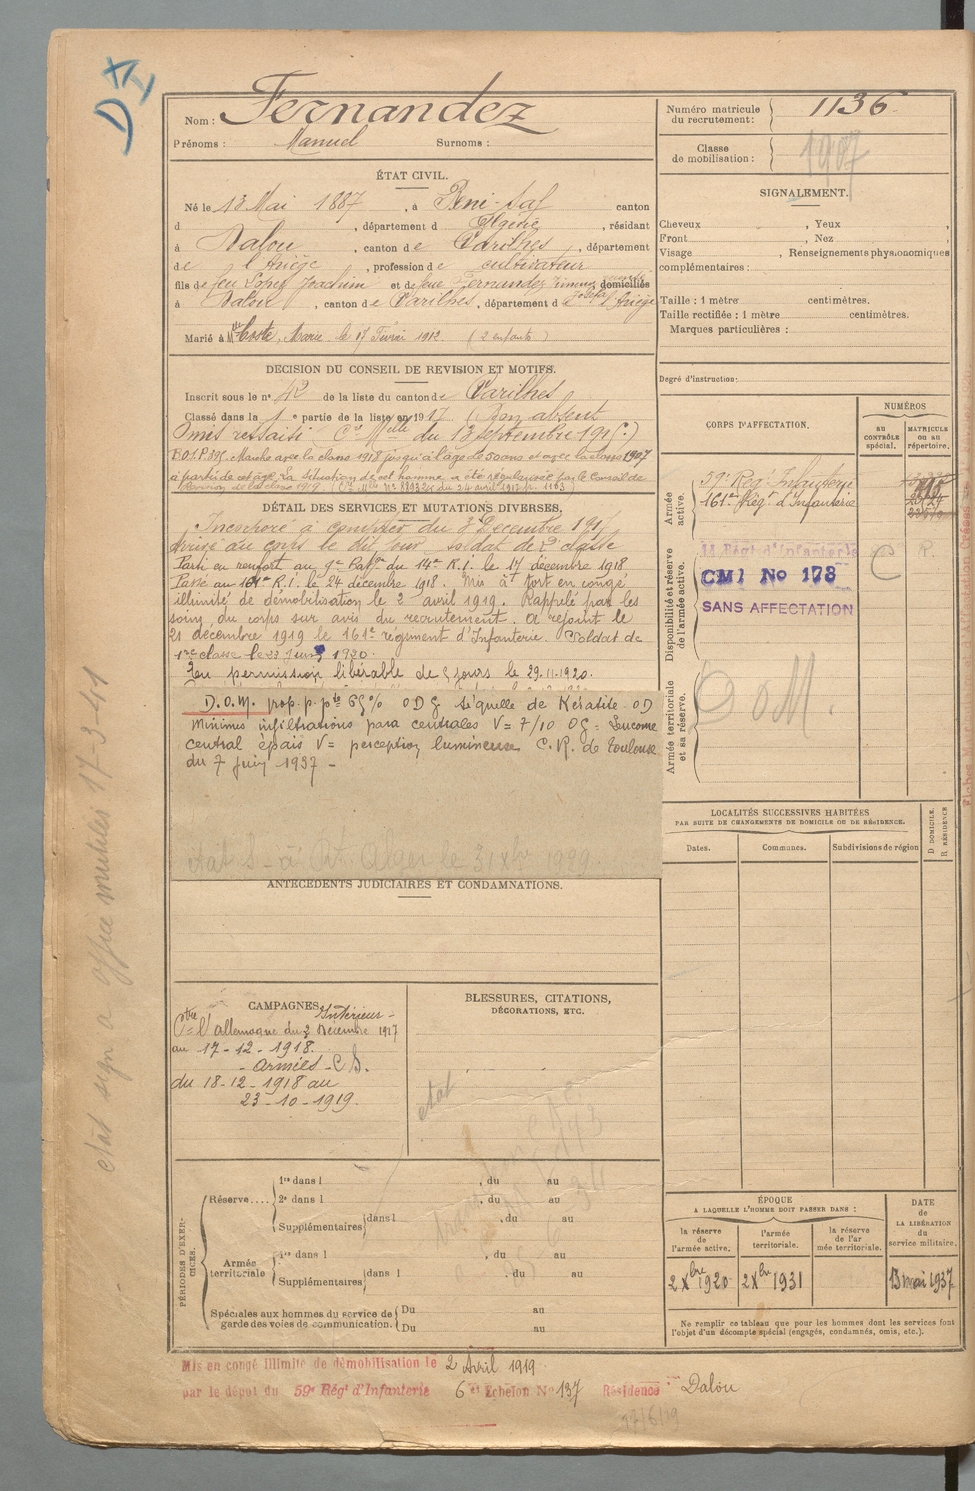 D I
Nom : Fernandez
Prénoms : Manuel Surnoms :
Numéro matricule du recrutement : 1136
Classe de mobilisation : 1907
ÉTAT CIVIL.
Né le 13 Mai 1887, à Beni-Saf canton
d , département d Algérie, résidant
à Dalou, canton de Varilhes, département
de l'Ariège, profession de cultivateur
fils de feu Lopez Joachim et de feue Fernandez domiciliés
à Dalou, canton de Varilhes, département d l'Ariège
Marié à Mlle Coste, Marie le 17 Février 1912 (2 enfants)
SIGNALEMENT.
Cheveux , Yeux ,
Front , Nez ,
Visage , Renseignements physionomiques
complémentaires :
Taille : 1 mètre centimètres.
Taille rectifiée : 1 mètre centimètres.
Marques particulières :
Degré d'instruction :
DECISION DU CONSEIL DE REVISION ET MOTIFS.
Inscrit sous le n° 42 de la liste du canton de Varilhes
Classé dans la 1e partie de la liste en 1917 (Bon absent
Omis ressaisi (Ce Mlle du 13 septembre 191
Marche avec la classe 1918 jusqu'à l'âge de 50 ans et avec la classe 1907
à partir de cet âge. La situation de cet homme a été régularisée par le Conseil de
Révision de la classe 1919. du 24 avril
DÉTAIL DES SERVICES ET MUTATIONS DIVERSES.
Incorporé à compter du 3 Décembre 1917
Arrivé au corps le dit jour soldat de 2e classe
Parti en renfort au 9e Batn du 14e R.I. le 17 décembre 1918
Passé au 161e R.I. le 24 décembre 1918. Mis à tort en congé
illimité de démobilisation le 2 avril 1919. Rappelé par les
soins du corps sur avis du recrutement. A rejoint le
21 décembre 1919 le 161e régiment d'Infanterie. Soldat de
1re classe le 23 Juin 1920.
En permission libérable de 5 jours le 29.11.1920.
D.O.M. prop. p. pte 65% ODG séquelle de Kératite OD
minimes infiltrations para centrales V = 7/10 OG = Leucome
central épais V = perception lumineuse C.R. de Toulouse
du 7 juin 1937 -
Alger le 31 Xbre 1929
CORPS D'AFFECTATION.
NUMÉROS
AU CONTRÔLE SPÉCIAL.
MATRICULE OU AU RÉPERTOIRE.
Armée active.
59e Rég. Infanterie
161e Régt d'Infanterie
Disponibilité et réserve de l'armée active.
14 Régt d'Infanterie
CMI No 178
SANS AFFECTATION
C R.
Armée territoriale et sa réserve.
DOM.
LOCALITÉS SUCCESSIVES HABITÉES
PAR SUITE DE CHANGEMENTS DE DOMICILE OU DE RÉSIDENCE.
D DOMICILE. R RÉSIDENCE
Dates. Communes. Subdivisions de région
ANTÉCÉDENTS JUDICIAIRES ET CONDAMNATIONS.
CAMPAGNES
Intérieur -
Ctre l'allemagne du 3 Décembre 1917
au 17-12-1918.
- armées - C S.
du 18-12-1918 au
23-10-1919.
BLESSURES, CITATIONS,
DÉCORATIONS, ETC.
état
PÉRIODES D'EXERCICES.
Réserve....
1re dans l , du au
2e dans l , du au
Supplémentaires dans l , du au
Armée territoriale
1re dans l , du au
Supplémentaires dans l , du au
Spéciales aux hommes du service de garde des voies de communication.
Du au
Du au
ÉPOQUE
A LAQUELLE L'HOMME DOIT PASSER DANS :
la réserve de l'armée active.
l'armée territoriale.
la réserve de l'armée territoriale.
DATE de LA LIBÉRATION du service militaire.
2 Xbre 1920
2 Xbre 1931
13 mai 1937
Ne remplir ce tableau que pour les hommes dont les services font
l'objet d'un décompte spécial (engagés, condamnés, omis, etc.).
Mis en congé illimité de démobilisation le 2 Avril 1919
par le dépôt du 59e Régt d'Infanterie 6e Echelon No 137 Résidence : Dalou
17/6/19
état sign à office mutilés 17-3-41